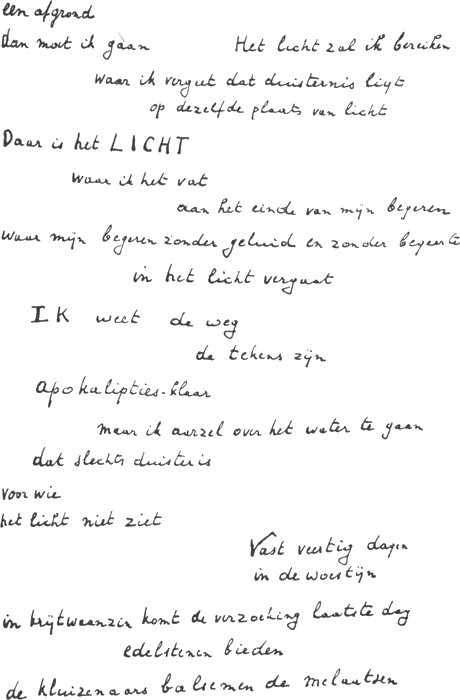 een afgrond
Dan moet ik gaan Het licht zal ik bereiken
waar ik vergeet dat duisternis ligt
op dezelfde plaats van licht
Daar is het LICHT
waar ik het vat
aan het einde van mijn begeren
waar mijn begeren zonder geluid en zonder begeerte
in het licht vergaat
IK weet de weg
de tekens zijn
apokalipties-klaar
maar ik aarzel over het water te gaan
dat slechts duister is
voor wie
het licht niet ziet
Vast veertig dagen
in de woestijn
in krijtwaanzin komt de verzoeking laatste dag
edelstenen bieden
de kluizenaars balsemen de melaatsen